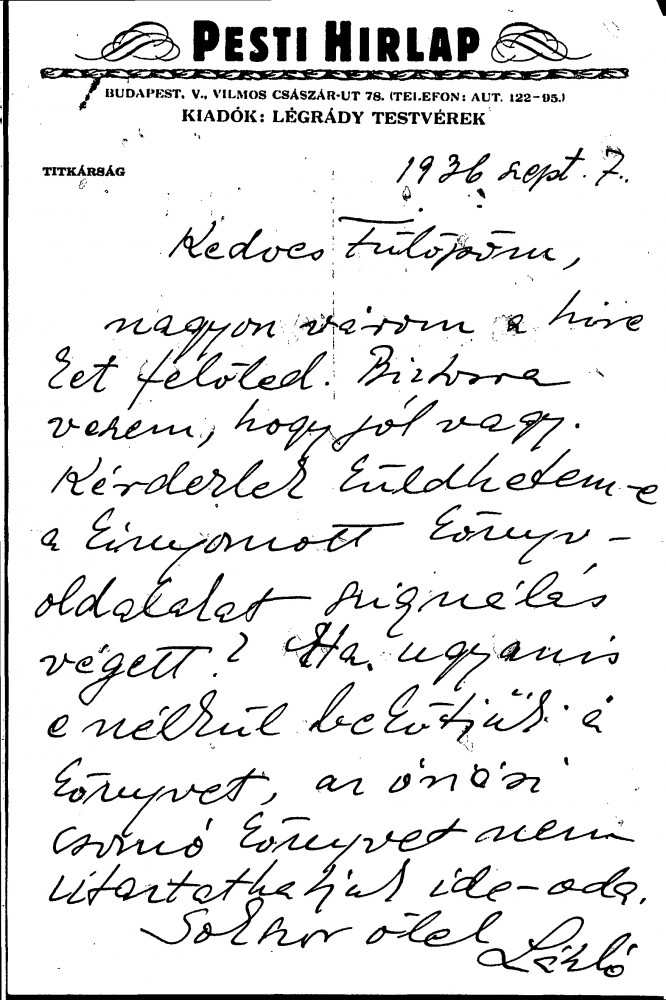 PESTI HIRLAP
BUDAPEST, V., VILMOS CSÁSZÁR-UT 78. (TELEFON: AUT. 122-95.)
KIADÓK: LÉGRÁDY TESTVÉREK
TITKÁRSÁG
1936 szept. 7.
Kedves Fülöpöm,
nagyon várom a híre
ket felőled. Biztosra
veszem, hogy jól vagy.
Kérdezlek küldhetem-e
a kinyomott könyv-
oldalakat szignálás
végett? Ha ugyanis
e nélkül bekötjük a
könyvet, az óriási
csomó könyvet nem
utaztathatjuk ide-oda.
Sokszor ölel
László